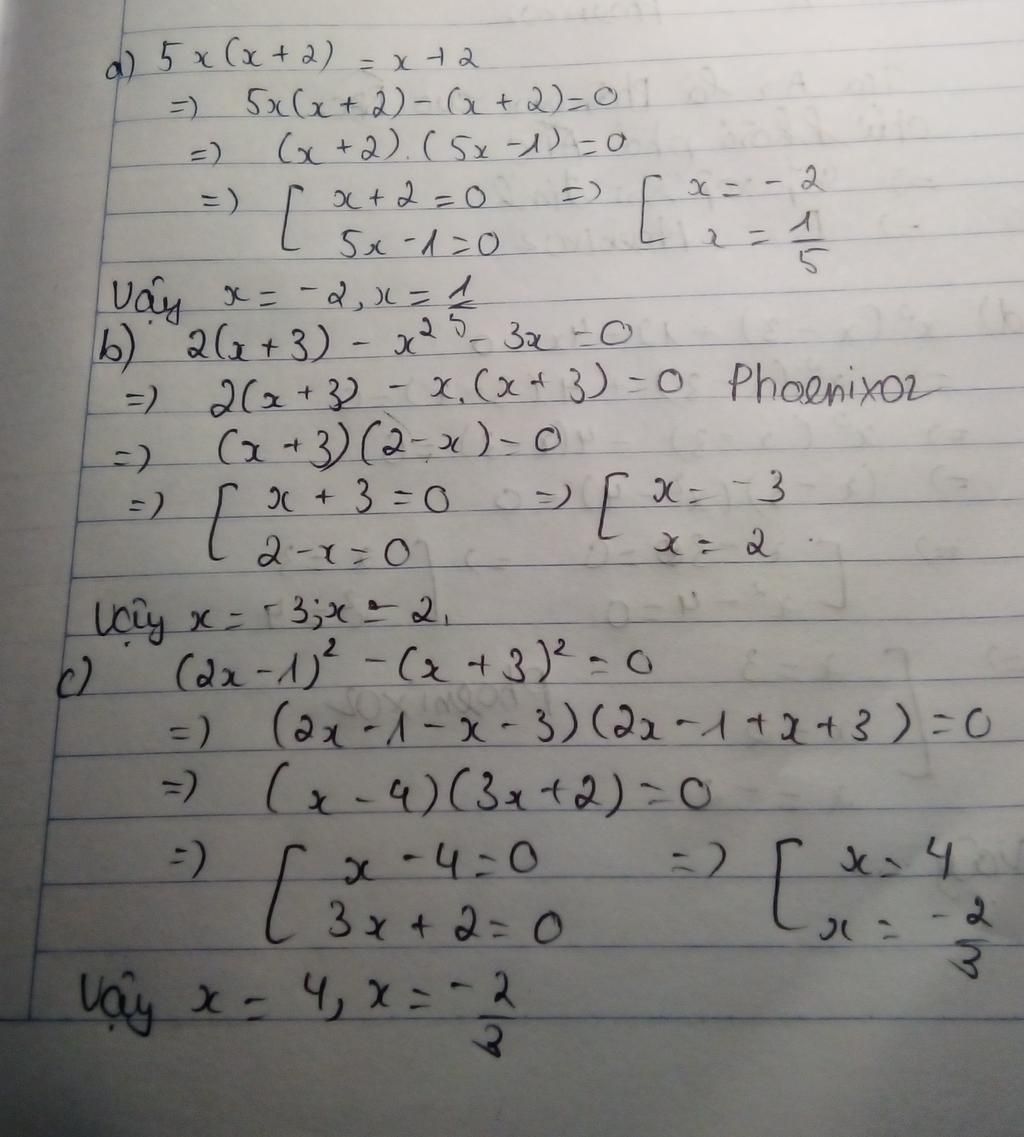 a) 5x(x+2) = x+2
=> 5x(x+2)-(x+2)=0
=> (x+2).(5x-1)=0
=> [ x+2=0 => [ x=-2
5x-1=0 x=1/5
Vậy x=-2, x=1/5
b) 2(x+3) - x² - 3x = 0
=> 2(x+3) - x.(x+3)=0 Phoenixoz
=> (x+3)(2-x)=0
=> [ x+3=0 => [ x=-3
2-x=0 x=2
Vậy x=-3; x=2.
c) (2x-1)² - (x+3)² = 0
=> (2x-1-x-3)(2x-1+x+3)=0
=> (x-4)(3x+2)=0
=> [ x-4=0 => [ x=4
3x+2=0 x=-2/3
Vậy x=4, x=-2/3